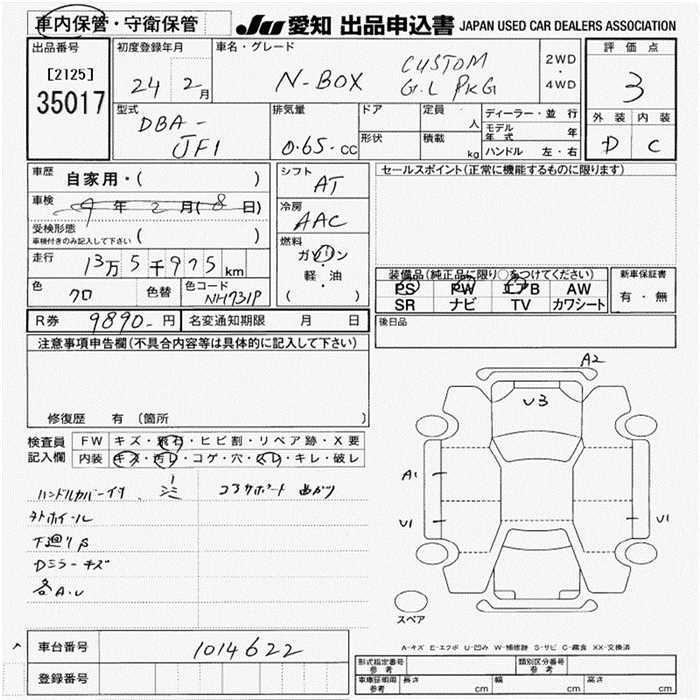 車内保管・守衛保管
JU 愛知 出品申込書 JAPAN USED CAR DEALERS ASSOCIATION
出品番号
[2125]
35017
初度登録年月
24 2月
車名・グレード
N-BOX
CUSTOM
G.L PKG
2WD
・
4WD
評価点
3
外装 内装
D C
型式
DBA-
JF1
排気量
0.65-cc
ドア
形状
定員 人
積載 kg
ディーラー・並行
モデル年式 年
ハンドル 左・右
車歴
自家用・( )
車検
9年2月(8日)
受検形態
車検付きのみ記入して下さい ( )
走行
13万5千975km
色
クロ
色替
色コード
NH731P
シフト
AT
冷房
AAC
燃料
ガソリン
・
軽・油
( )
セールスポイント(正常に機能するものに限ります)
装備品(純正品に限り○をつけてください)
PS PW エアB AW
SR ナビ TV カワシート
新車保証書
有・無
後日品
R券 9890-円
名変通知期限 月 日
注意事項申告欄(不具合内容等は具体的に記入して下さい)
修復歴 有 (箇所 )
検査員
記入欄
FW キズ・飛石・ヒビ割・リペア跡・X要
内装 キズ・汚レ・コゲ・穴・スレ・キレ・破レ
ハンドルカバー付 シミ コアサポート 曲がり
下廻りS
Dミラーキズ
各A.U
A2
U3
A1
U1
U1
スペア
A-キズ E-エクボ U-凹み W-補修跡 S-サビ C-腐食 XX-交換済
車台番号
1014622
登録番号
形式指定番号
参考
類別区分番号
参考
車庫証明用
参考
長さ cm
幅 cm
高さ cm